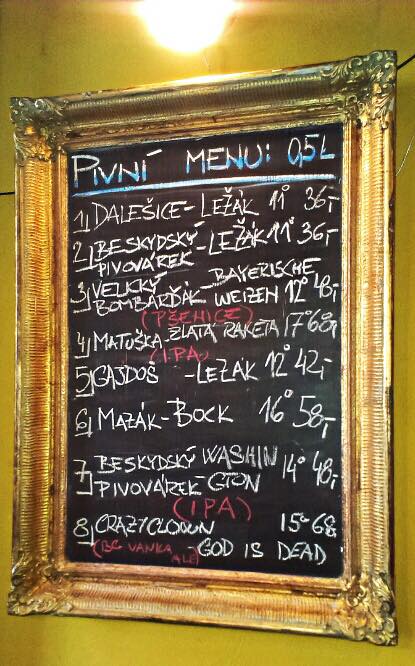 PIVNÍ MENU: 0,5L
1) DALEŠICE - LEŽÁK 11° 36,-
2) BESKYDSKÝ PIVOVÁREK - LEŽÁK 11° 36,-
3) VELICKÝ BOMBARĎÁK - BAYERISCHE WEIZEN 12° 48,-
(PŠENICE)
4) MATUŠKA - ZLATÁ RAKETA 17° 68,-
(IPA)
5) GAJDOŠ - LEŽÁK 12° 42,-
6) MAZÁK - BOCK 16° 58,-
7) BESKYDSKÝ PIVOVÁREK WASHINGTON 14° 48,-
(IPA)
8) CRAZY CLOWN 15° 68,-
GOD IS DEAD